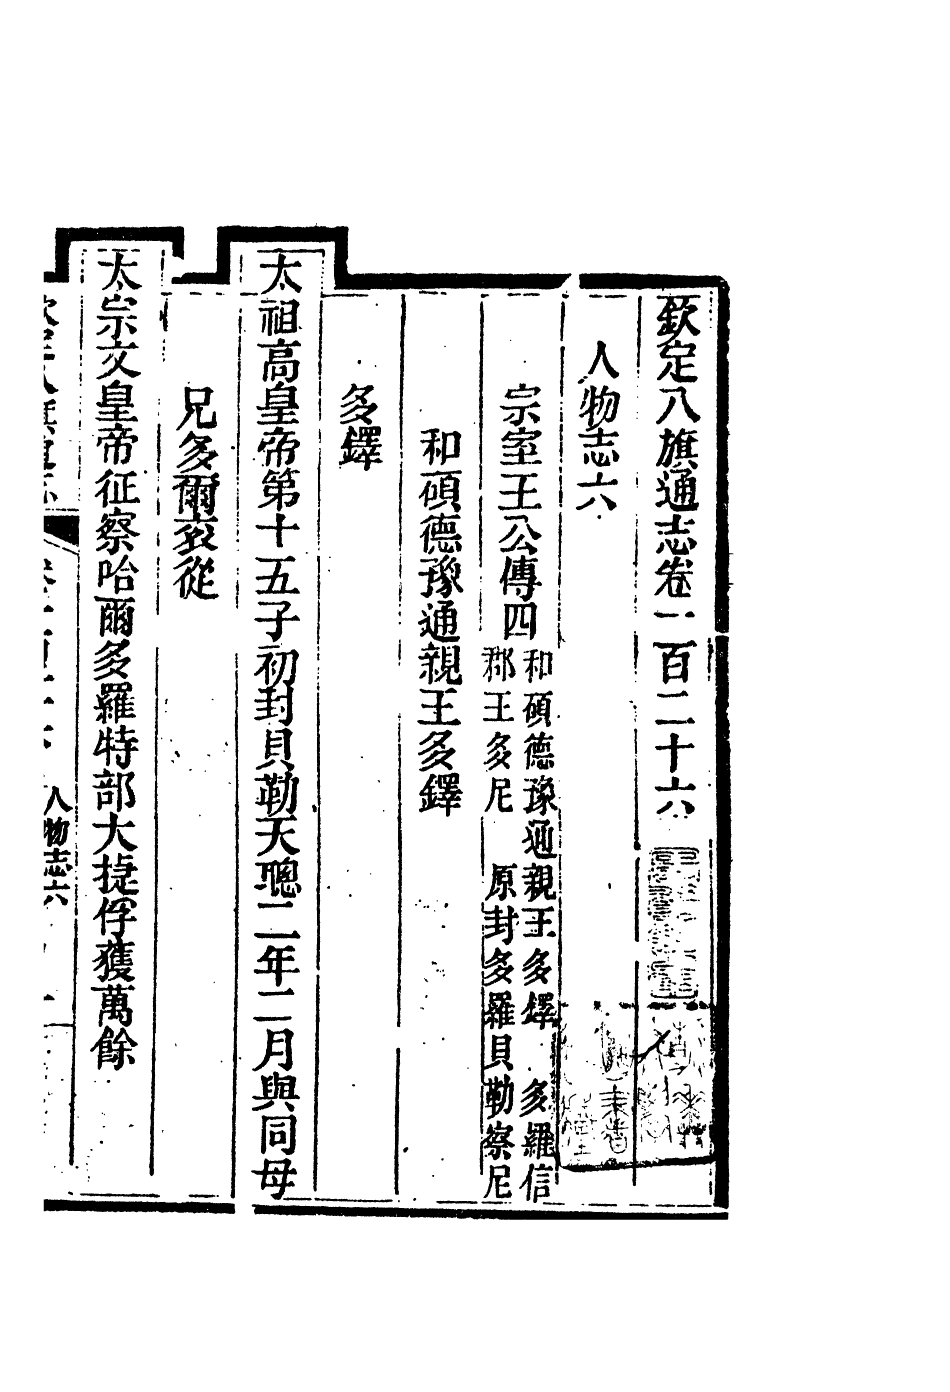 欽定八旗通志卷一百二十六
人物志六
宗室王公傳四
和碩德豫通親王多鐸 多羅信
郡王多尼 原封多羅貝勒察尼
和碩德豫通親王多鐸
多鐸
太祖高皇帝第十五子初封貝勒天聰二年二月與同母
兄多爾袞從
太宗文皇帝征察哈爾多羅特部大捷俘獲萬餘
人物志六